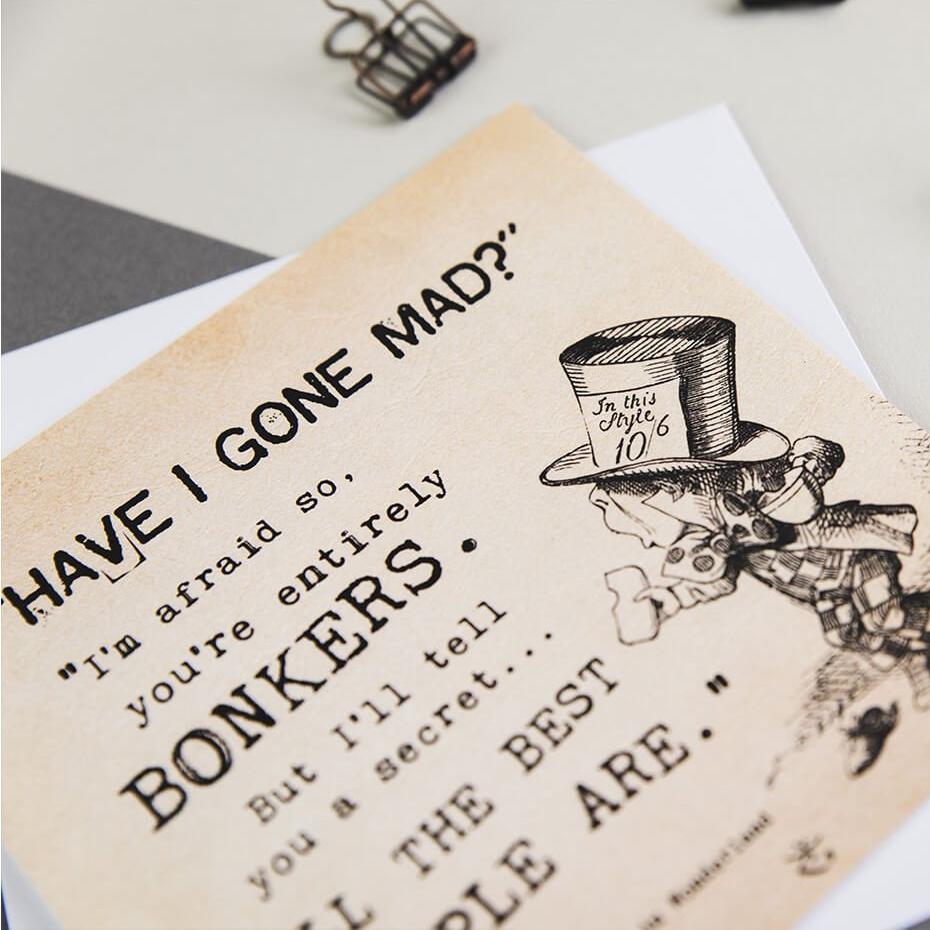 "HAVE I GONE MAD?"
"I'm afraid so,
you're entirely
BONKERS.
But I'll tell
you a secret...
THE BEST
ARE."
In this
Style
10/6